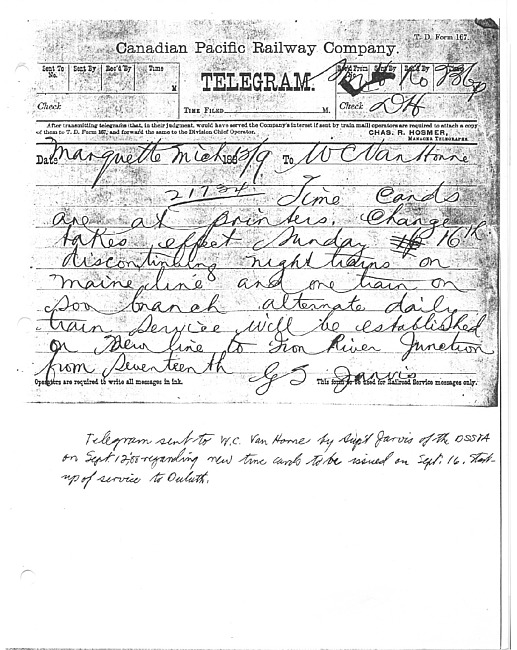 T. D. Form 167.
Canadian Pacific Railway Company.
Sent To No. Sent By Rec'd By Time M
TELEGRAM.
Sent By Rec'd By Time
Check
TIME FILED M.
Check DH
After transmitting telegrams that, in their judgment, would have served the Company's interest if sent by train mail, operators are required to attach a copy
of them to T. D. Form 167, and forward the same to the Division Chief Operator.
CHAS. R. HOSMER,
MANAGER TELEGRAPHS.
Date Marquette Mich 188 To W C Van Horne
21734. Time Cards
are at printers. Change
takes effect Sunday 16th
discontinuing night trains on
maine line and one train on
Soo branch alternate daily
train service will be established
on New line to Iron River Junction
from Seventeenth
G S Jarvis
Operators are required to write all messages in ink. This form to be used for Railroad Service messages only.
Telegram sent to W.C. Van Horne by Sup't Jarvis of the DSS&A
on Sept 12 regarding new time cards to be issued on Sept. 16. Start-
up of service to Duluth.